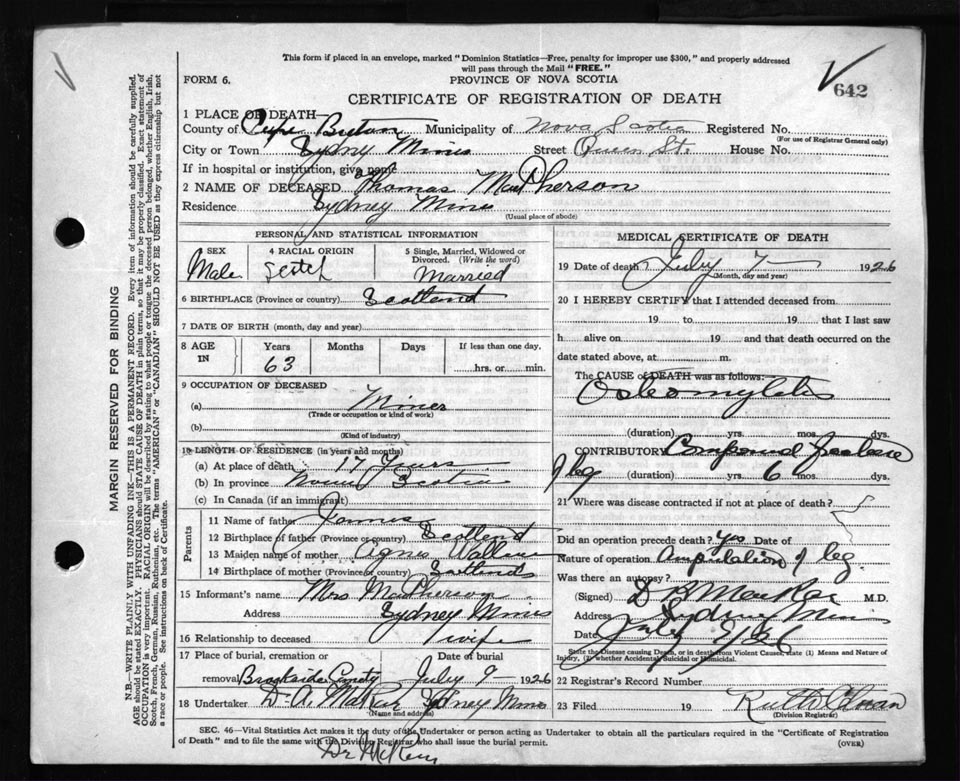 This form if placed in an envelope, marked "Dominion Statistics—Free, penalty for improper use $300," and properly addressed
will pass through the Mail "FREE."
FORM 6. PROVINCE OF NOVA SCOTIA
642
CERTIFICATE OF REGISTRATION OF DEATH
1 PLACE OF DEATH—
County of Cape Breton Municipality of Nova Scotia Registered No.
(For use of Registrar General only)
City or Town Sydney Mines Street Queen St. House No.
If in hospital or institution, give name
2 NAME OF DECEASED Thomas MacPherson
Residence Sydney Mines
(Usual place of abode)
PERSONAL AND STATISTICAL INFORMATION
SEX Male
4 RACIAL ORIGIN Scotch
5 Single, Married, Widowed or Divorced. (Write the word) Married
6 BIRTHPLACE (Province or country) Scotland
7 DATE OF BIRTH (month, day and year)
8 AGE IN Years Months Days If less than one day,
63 hrs. or min.
9 OCCUPATION OF DECEASED
(a) Miner
(Trade or occupation or kind of work)
(b)
(Kind of industry)
10 LENGTH OF RESIDENCE (in years and months)
(a) At place of death 17 Years
(b) In province Nova Scotia
(c) In Canada (if an immigrant)
Parents
11 Name of father James
12 Birthplace of father (Province or country) Scotland
13 Maiden name of mother Agnes Wallace
14 Birthplace of mother (Province or country) Scotland
15 Informant's name Mrs MacPherson
Address Sydney Mines
16 Relationship to deceased wife
17 Place of burial, cremation or Date of burial
removal Brookside July 9 1926
18 Undertaker D. A. Sydney Mines
(Name and address)
MEDICAL CERTIFICATE OF DEATH
19 Date of death July 7— 1926
(Month, day and year)
20 I HEREBY CERTIFY that I attended deceased from
19 to 19 that I last saw
h alive on 19 and that death occurred on the
date stated above, at m.
The CAUSE of DEATH was as follows:
Osteomyletis
(duration) yrs. mos. dys.
CONTRIBUTORY Compound fracture
of leg (duration) yrs. 6 mos. dys.
21 Where was disease contracted if not at place of death?
Did an operation precede death? Yes Date of
Nature of operation Amputation of leg
Was there an autopsy?
(Signed) M.D.
Address Sydney Mines
Date July
State the Disease causing Death, or in death from Violent Causes, state (1) Means and Nature of
Injury, (2) whether Accidental, Suicidal or Homicidal.
22 Registrar's Record Number
23 Filed 19 Ruth
(Division Registrar)
SEC. 46—Vital Statistics Act makes it the duty of the Undertaker or person acting as Undertaker to obtain all the particulars required in the "Certificate of Registration
of Death" and to file the same with the Division Registrar who shall issue the burial permit. (OVER)
Dr
MARGIN RESERVED FOR BINDING
N.B.—WRITE PLAINLY WITH UNFADING INK—THIS IS A PERMANENT RECORD. Every item of information should be carefully supplied.
AGE should be stated EXACTLY. PHYSICIANS should STATE CAUSE OF DEATH in plain terms, so that it may be properly classified. Exact statement of
OCCUPATION is very important. RACIAL ORIGIN will be described by stating to what people or tongue the deceased person belonged, whether English, Irish,
Scotch, French, German, Russian, Ruthenian, etc. The terms "AMERICAN" or "CANADIAN" SHOULD NOT BE USED as they express citizenship but not
a race or people. See instructions on back of Certificate.